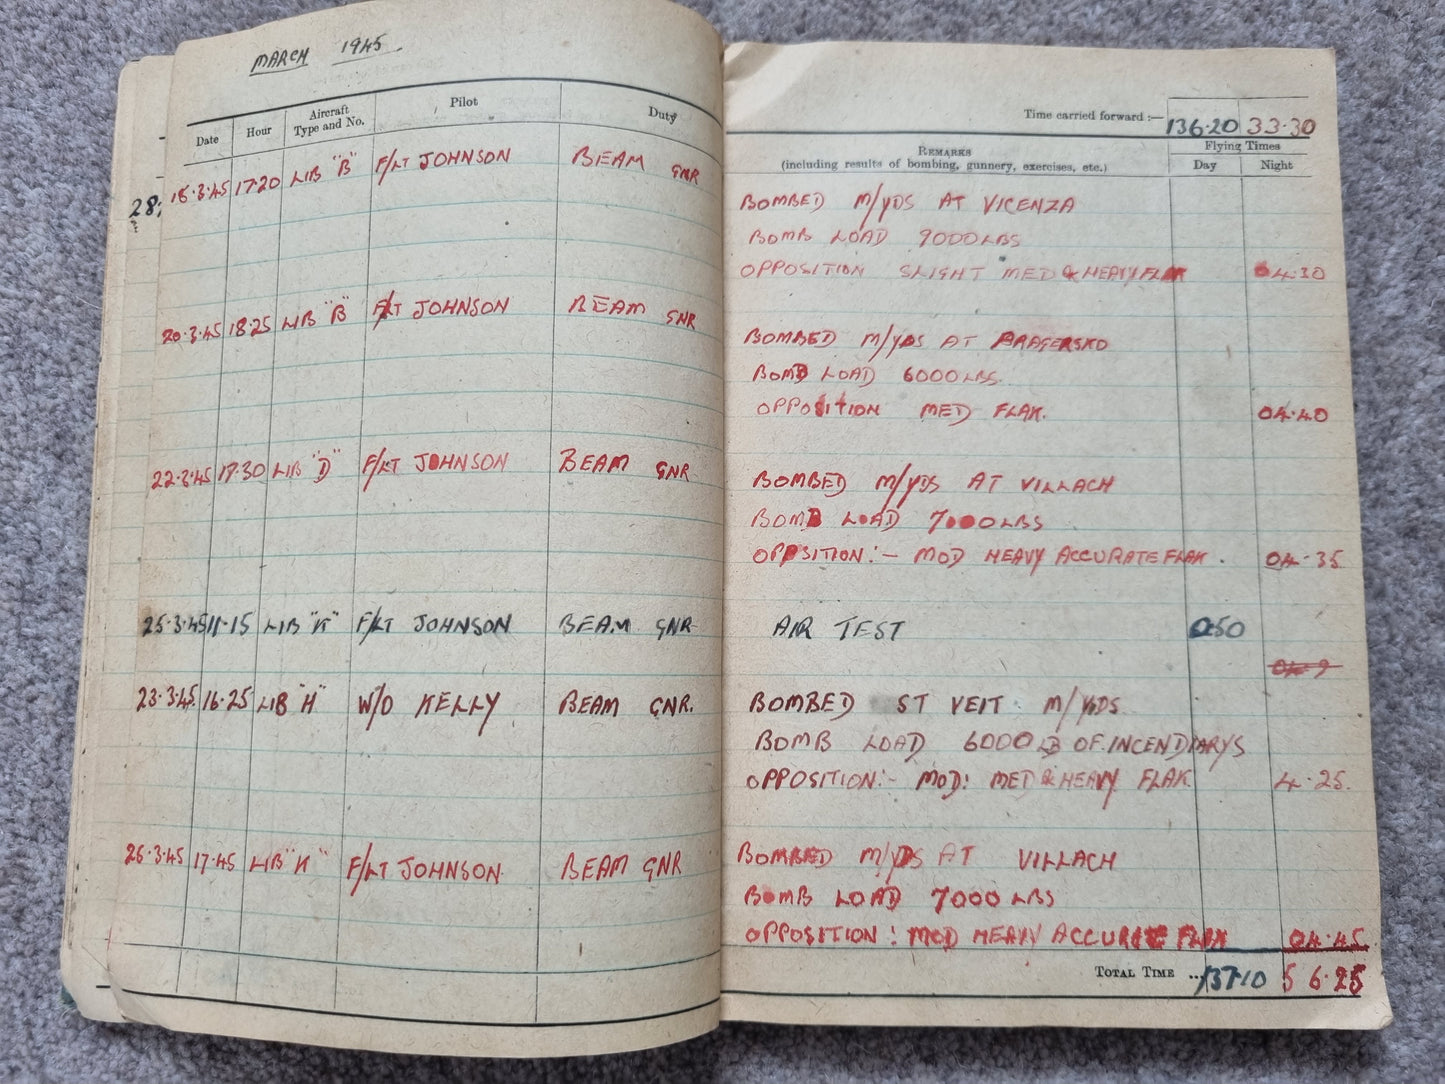 MARCH 1945
Date Hour Aircraft Type and No. Pilot Duty
28
18·3·45 1720 LIB "B" F/LT JOHNSON BEAM GNR
20·3·45 18·25 LIB "B" F/LT JOHNSON BEAM GNR
22·3·45 17·30 LIB "D" F/LT JOHNSON BEAM GNR
25·3·45 11·15 LIB "K" F/LT JOHNSON BEAM GNR
23·3·45 16·25 LIB "H" W/O KELLY BEAM GNR.
26·3·45 17·45 LIB "K" F/LT JOHNSON BEAM GNR
Time carried forward :— 136·20 33·30
REMARKS
(including results of bombing, gunnery, exercises, etc.)
Flying Times
Day Night
BOMBED M/YDS AT VICENZA
BOMB LOAD 9000 LBS
OPPOSITION SLIGHT MED & HEAVY FLAK 04·30
BOMBED M/YDS AT PRAGERSKO
BOMB LOAD 6000 LBS.
OPPOSITION MED FLAK. 04·40
BOMBED M/YDS AT VILLACH
BOMB LOAD 7000 LBS
OPPOSITION :— MOD HEAVY ACCURATE FLAK . 04·35
AIR TEST 0·50
BOMBED ST VEIT M/YDS
BOMB LOAD 6000 LB OF INCENDIARYS
OPPOSITION :- MOD: MED & HEAVY FLAK 4·25.
BOMBED M/YDS AT VILLACH
BOMB LOAD 7000 LBS
OPPOSITION : MOD HEAVY ACCURATE FLAK 04·45
TOTAL TIME ... 137·10 56·25